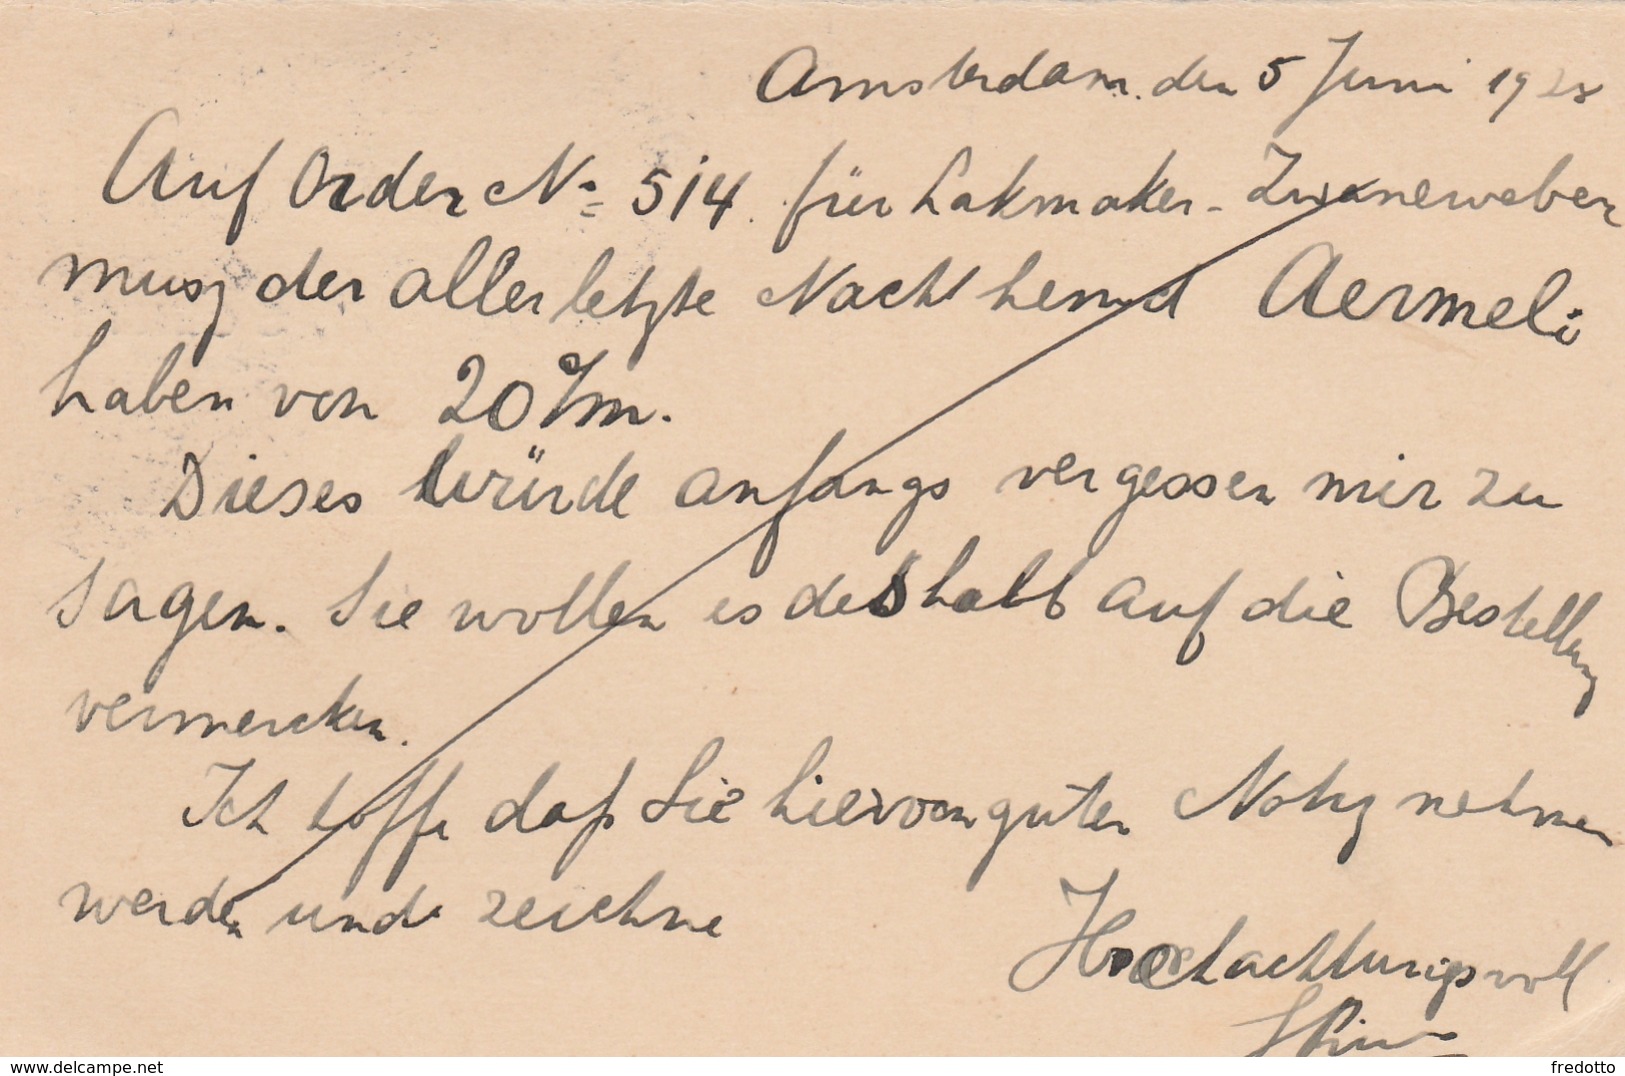 Amsterdam. den 5 Juni 1928
Auf Order No 514 für Lakmaker-Zwaneweber
musz der allerletzte Nachthemd Aermel
haben von 20 %m.
Dieses würde anfangs vergessen mir zu
sagen. Sie wollen es deshalb auf die Bestellung
vermercken.
Ich hoffe daß Sie hiervon guten Notiz nehmen
werden und zeichne
Hochachtungsvoll
www.delcampe.net fredotto